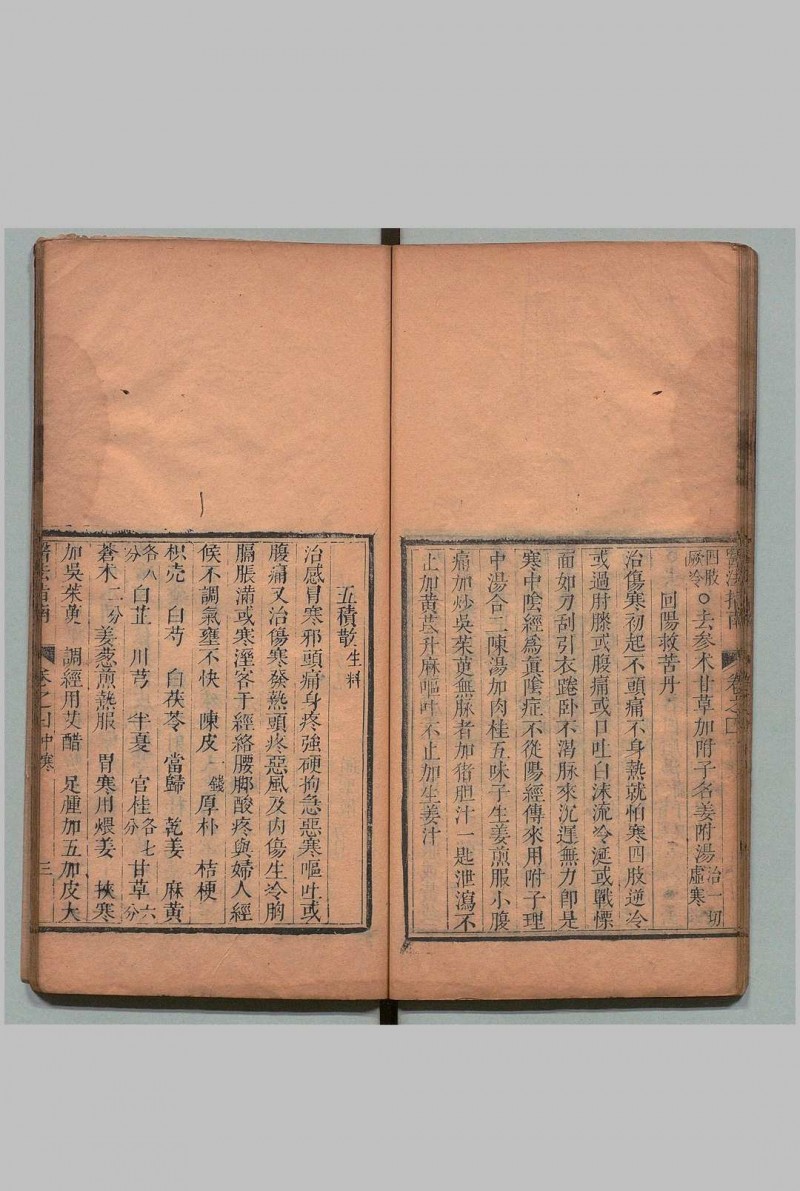 醫法指南 卷之四
四肢厥冷○去參术甘草加附子名姜附湯治一切虛寒
回陽救苦丹
治傷寒初起不頭痛不身熱就怕寒四肢逆冷
或過肘膝或腹痛或口吐白沫流冷涎或戰慄
面如刀刮引衣踡卧不渴脉來沉遲無力卽是
寒中陰經爲眞陰症不從陽經傳來用附子理
中湯合二陳湯加肉桂五味子生姜煎服小腹
痛加炒吳茱萸無脉者加猪胆汁一匙泄瀉不
止加黃芪升麻嘔吐不止加生姜汁
五積散生料
治感冒寒邪頭痛身疼強硬拘急惡寒嘔吐或
腹痛又治傷寒發熱頭疼惡風及內傷生冷胸
膈脹滿或寒溼客于經絡腰脚酸疼與婦人經
候不調氣壅不快 陳皮一錢 厚朴 桔梗
枳壳 白芍 白茯苓 當歸 乾姜 麻黃
各八分 白芷 川芎 半夏 官桂各七分 甘草六分
蒼术二分 姜葱煎熱服 胃寒用煨姜 挾寒
加吳茱萸 調經用艾醋 足腫加五加皮大
醫法指南 卷之四中寒 三